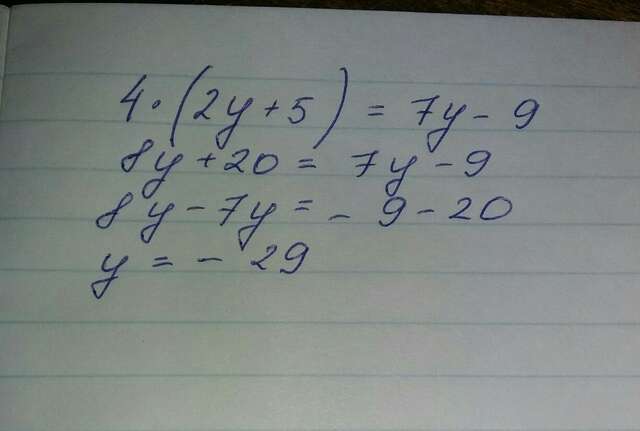 4·(2y+5)=7y-9
8y+20=7y-9
8y-7y=-9-20
y=-29